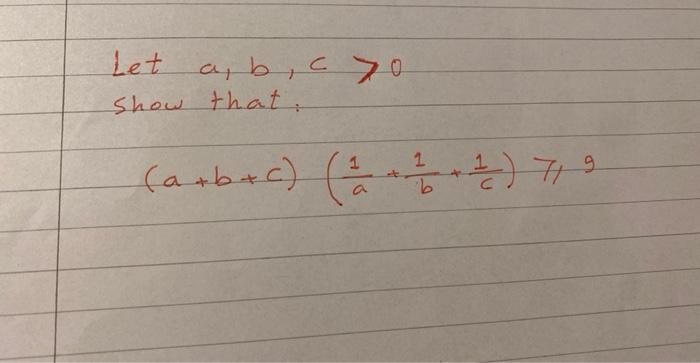 Let a, b, c > 0
show that:
(a+b+c) (1/a + 1/b + 1/c) ⩾ 9